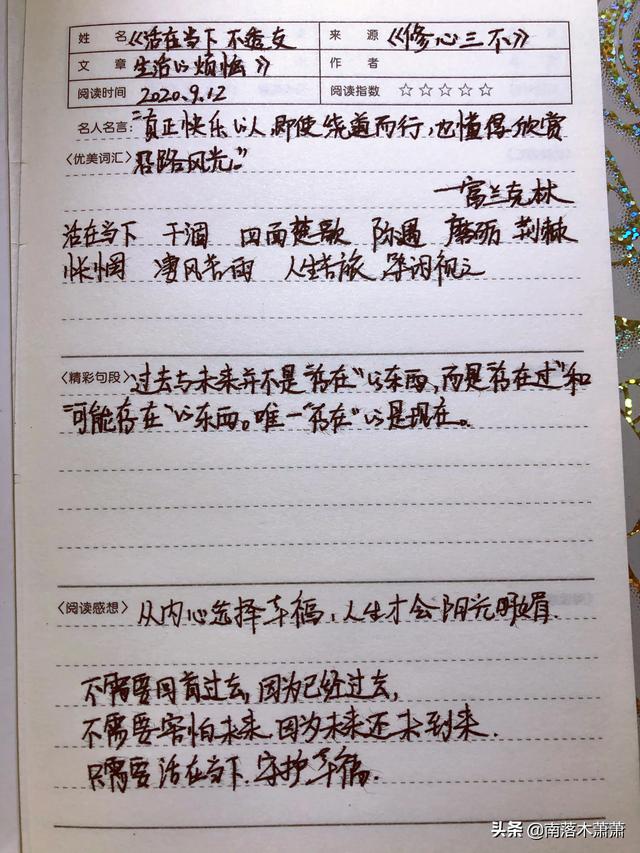 姓 名 《活在当下 不透支 来 源 《修心三不》
文 章 生活的烦恼》 作 者
阅读时间 2020.9.12 阅读指数 ☆☆☆☆☆
名人名言: "真正快乐的人,即使绕道而行,也懂得欣赏
〈优美词汇〉 沿路风光"
——富兰克林
活在当下 干涸 四面楚歌 际遇 磨砺 荆棘
怅惘 凄风苦雨 人生苦旅 等闲视之
〈精彩句段〉 过去与未来并不是"存在"的东西,而是"存在过"和
"可能存在"的东西。唯一"存在"的是现在。
〈阅读感想〉 从内心选择幸福,人生才会阳光明媚.
不需要回首过去,因为已经过去,
不需要害怕未来,因为未来还未到来.
只需要活在当下.守护幸福.
头条 @南落木萧萧